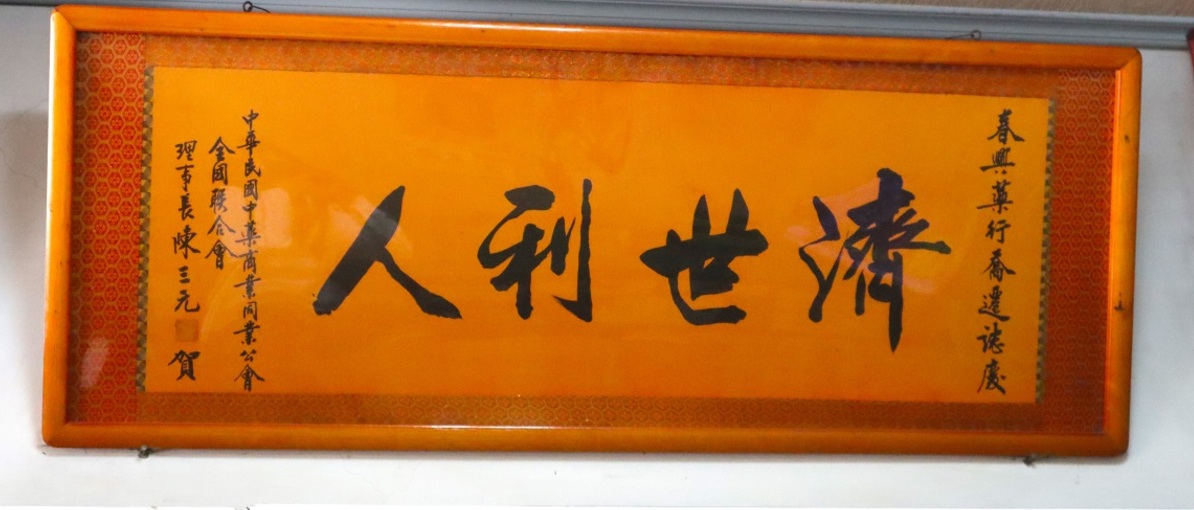 春興藥行喬遷誌慶
濟世利人
中華民國中藥商業同業公會
全國聯合會
理事長陳三元
賀